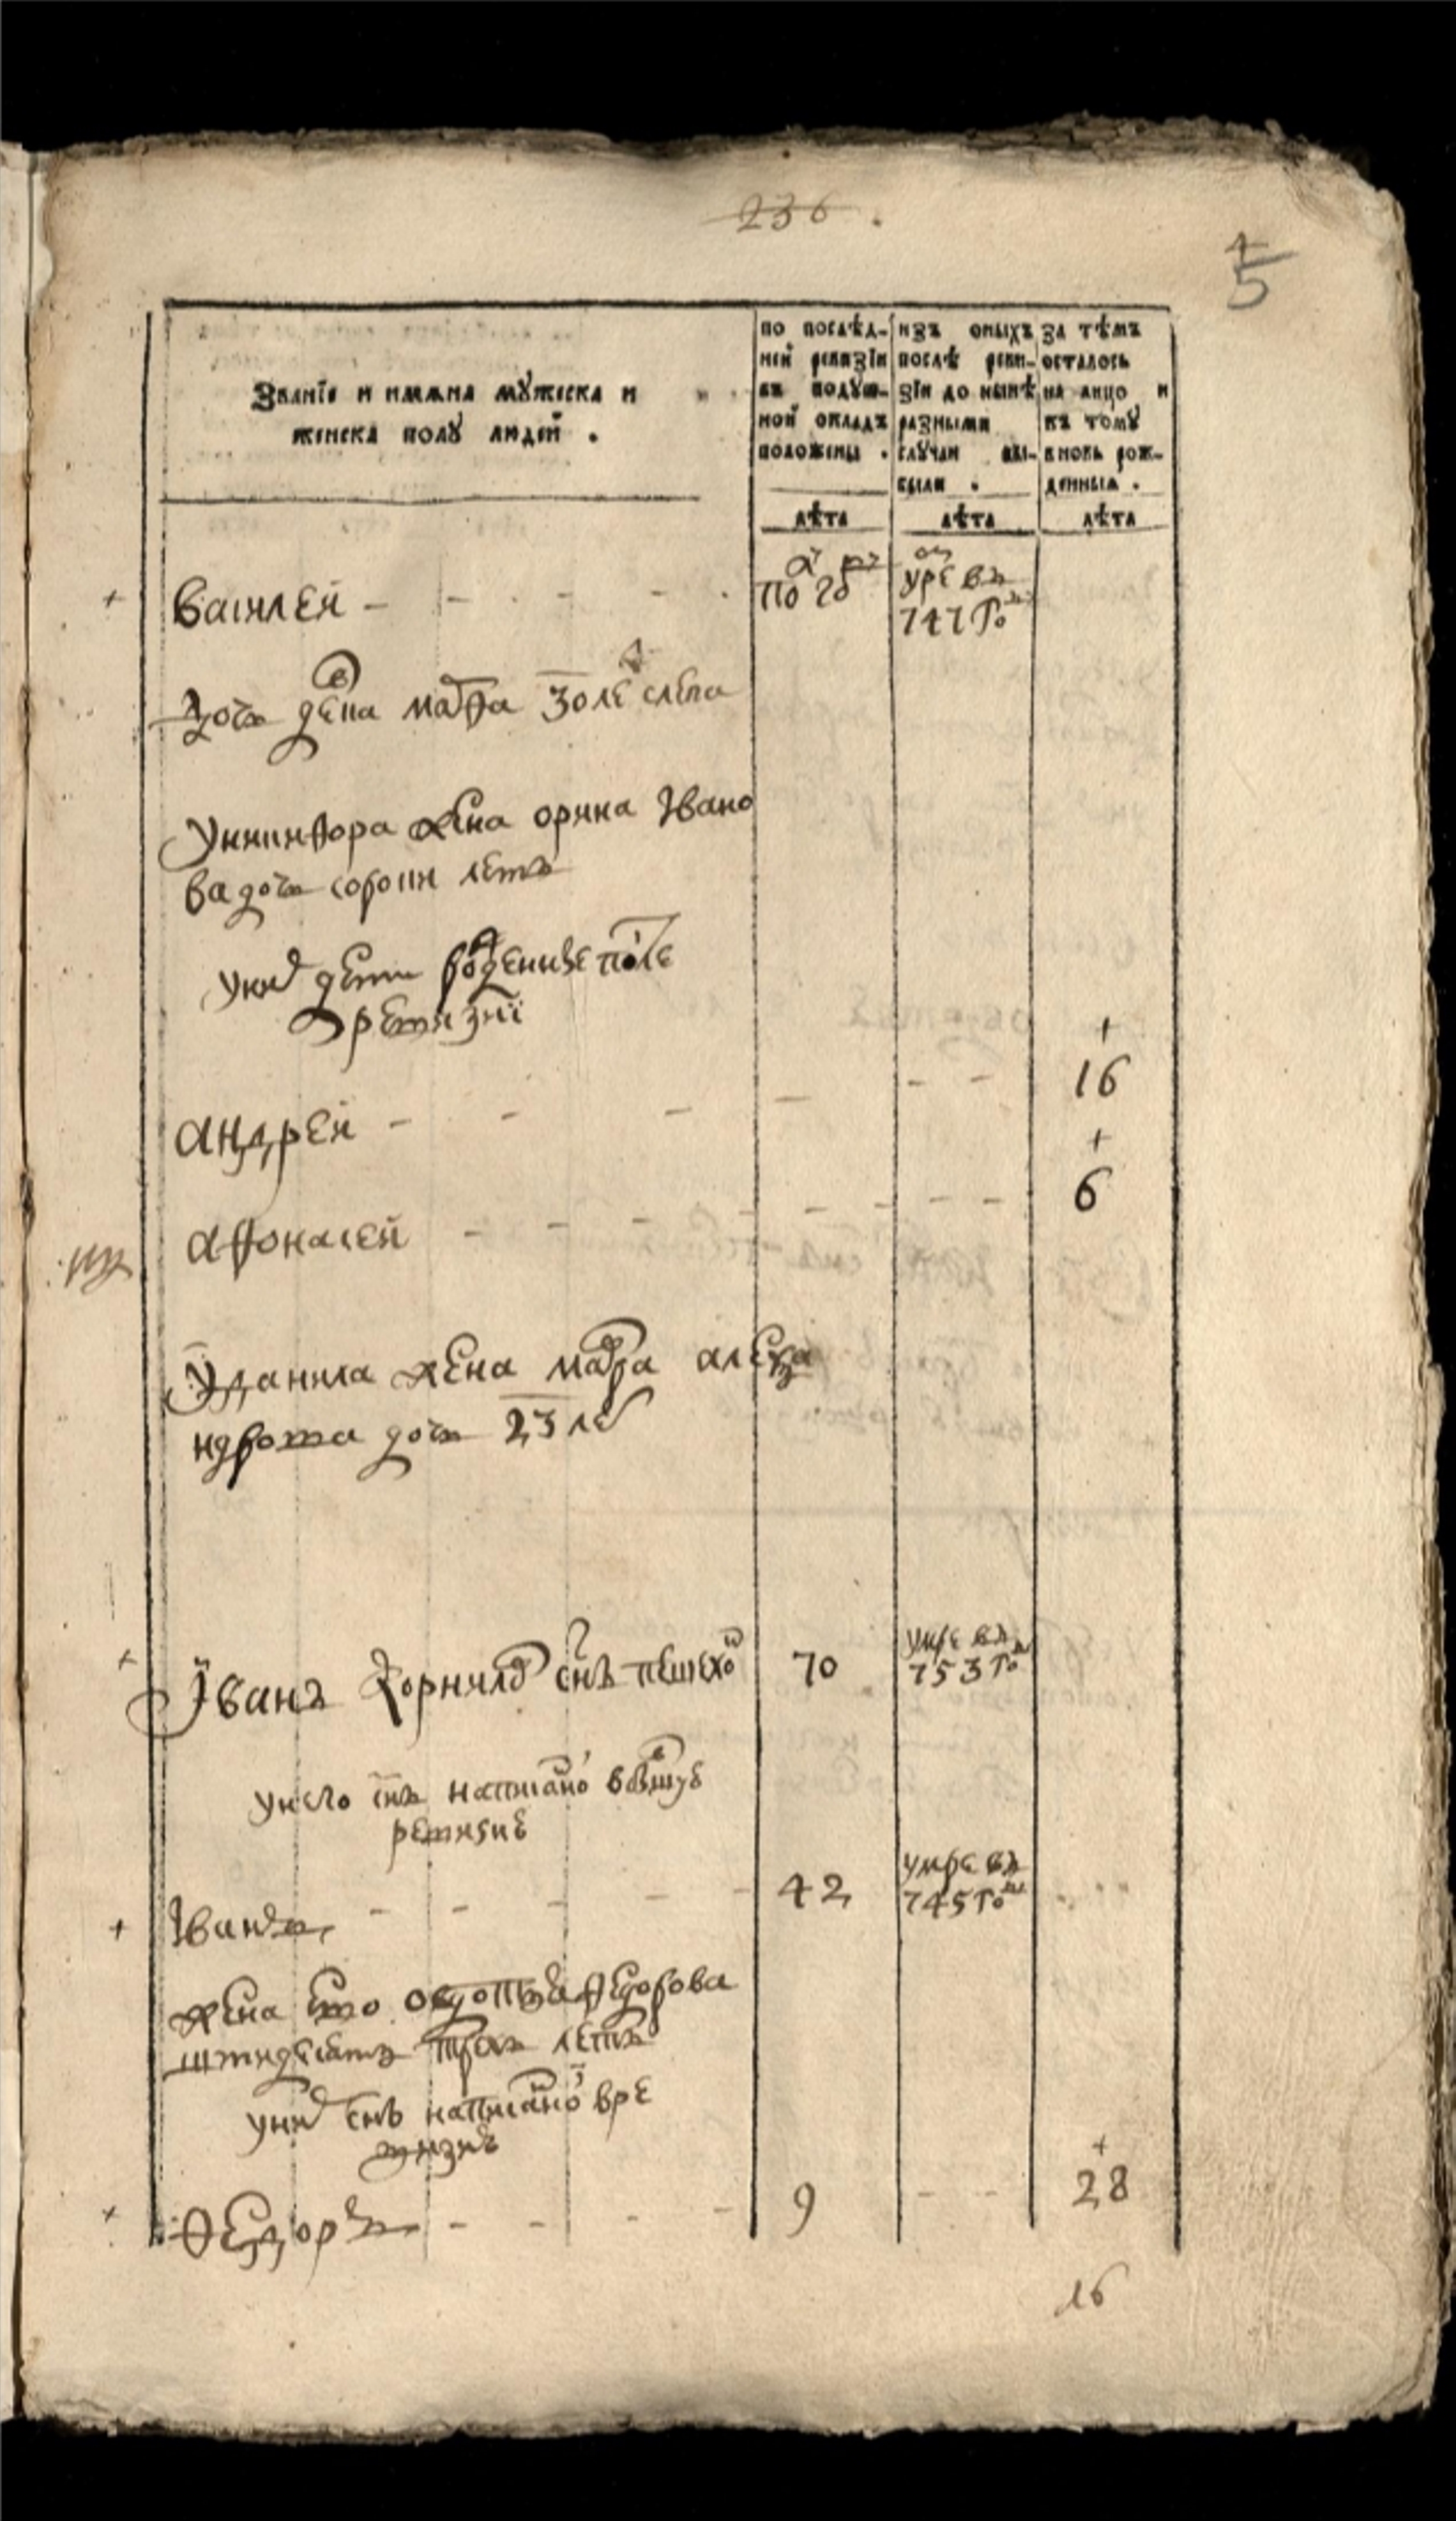 236.
5
Званїе и имѧна мꙋжеска и
женска полꙋ людей .
по послѣд-
ней ревизїи
въ подꙋш-
ной окладъ
положены .
изъ оныхъ
послѣ реви-
зїи до нынѣ
разными
слꙋчаи вы-
были .
за тѣмъ
осталось
на лицо и
къ томꙋ
вновь рож-
денныѧ .
лѣта
лѣта
лѣта
Василей
по год
умре въ
747 го
дочь девка марфа 30 ле слепа
У никифора жена орина Ївано
ва дочь сорони летъ
у них дети рожденные после
ревизиї
андрей 16
афонасей 6
У данила жена марфа алекса
ндрова дочь 23 лет
Їванъ корнилов снъ пешехо 70 умре въ
753 го
у него снъ написано в бывшую
ревизие
Їванъ 42 умре въ
745 го
жена ево овдотья федорова
штидесятъ трехъ летъ
у них снъ написаной в ре
визие
Ѳедоръ 9 28
16